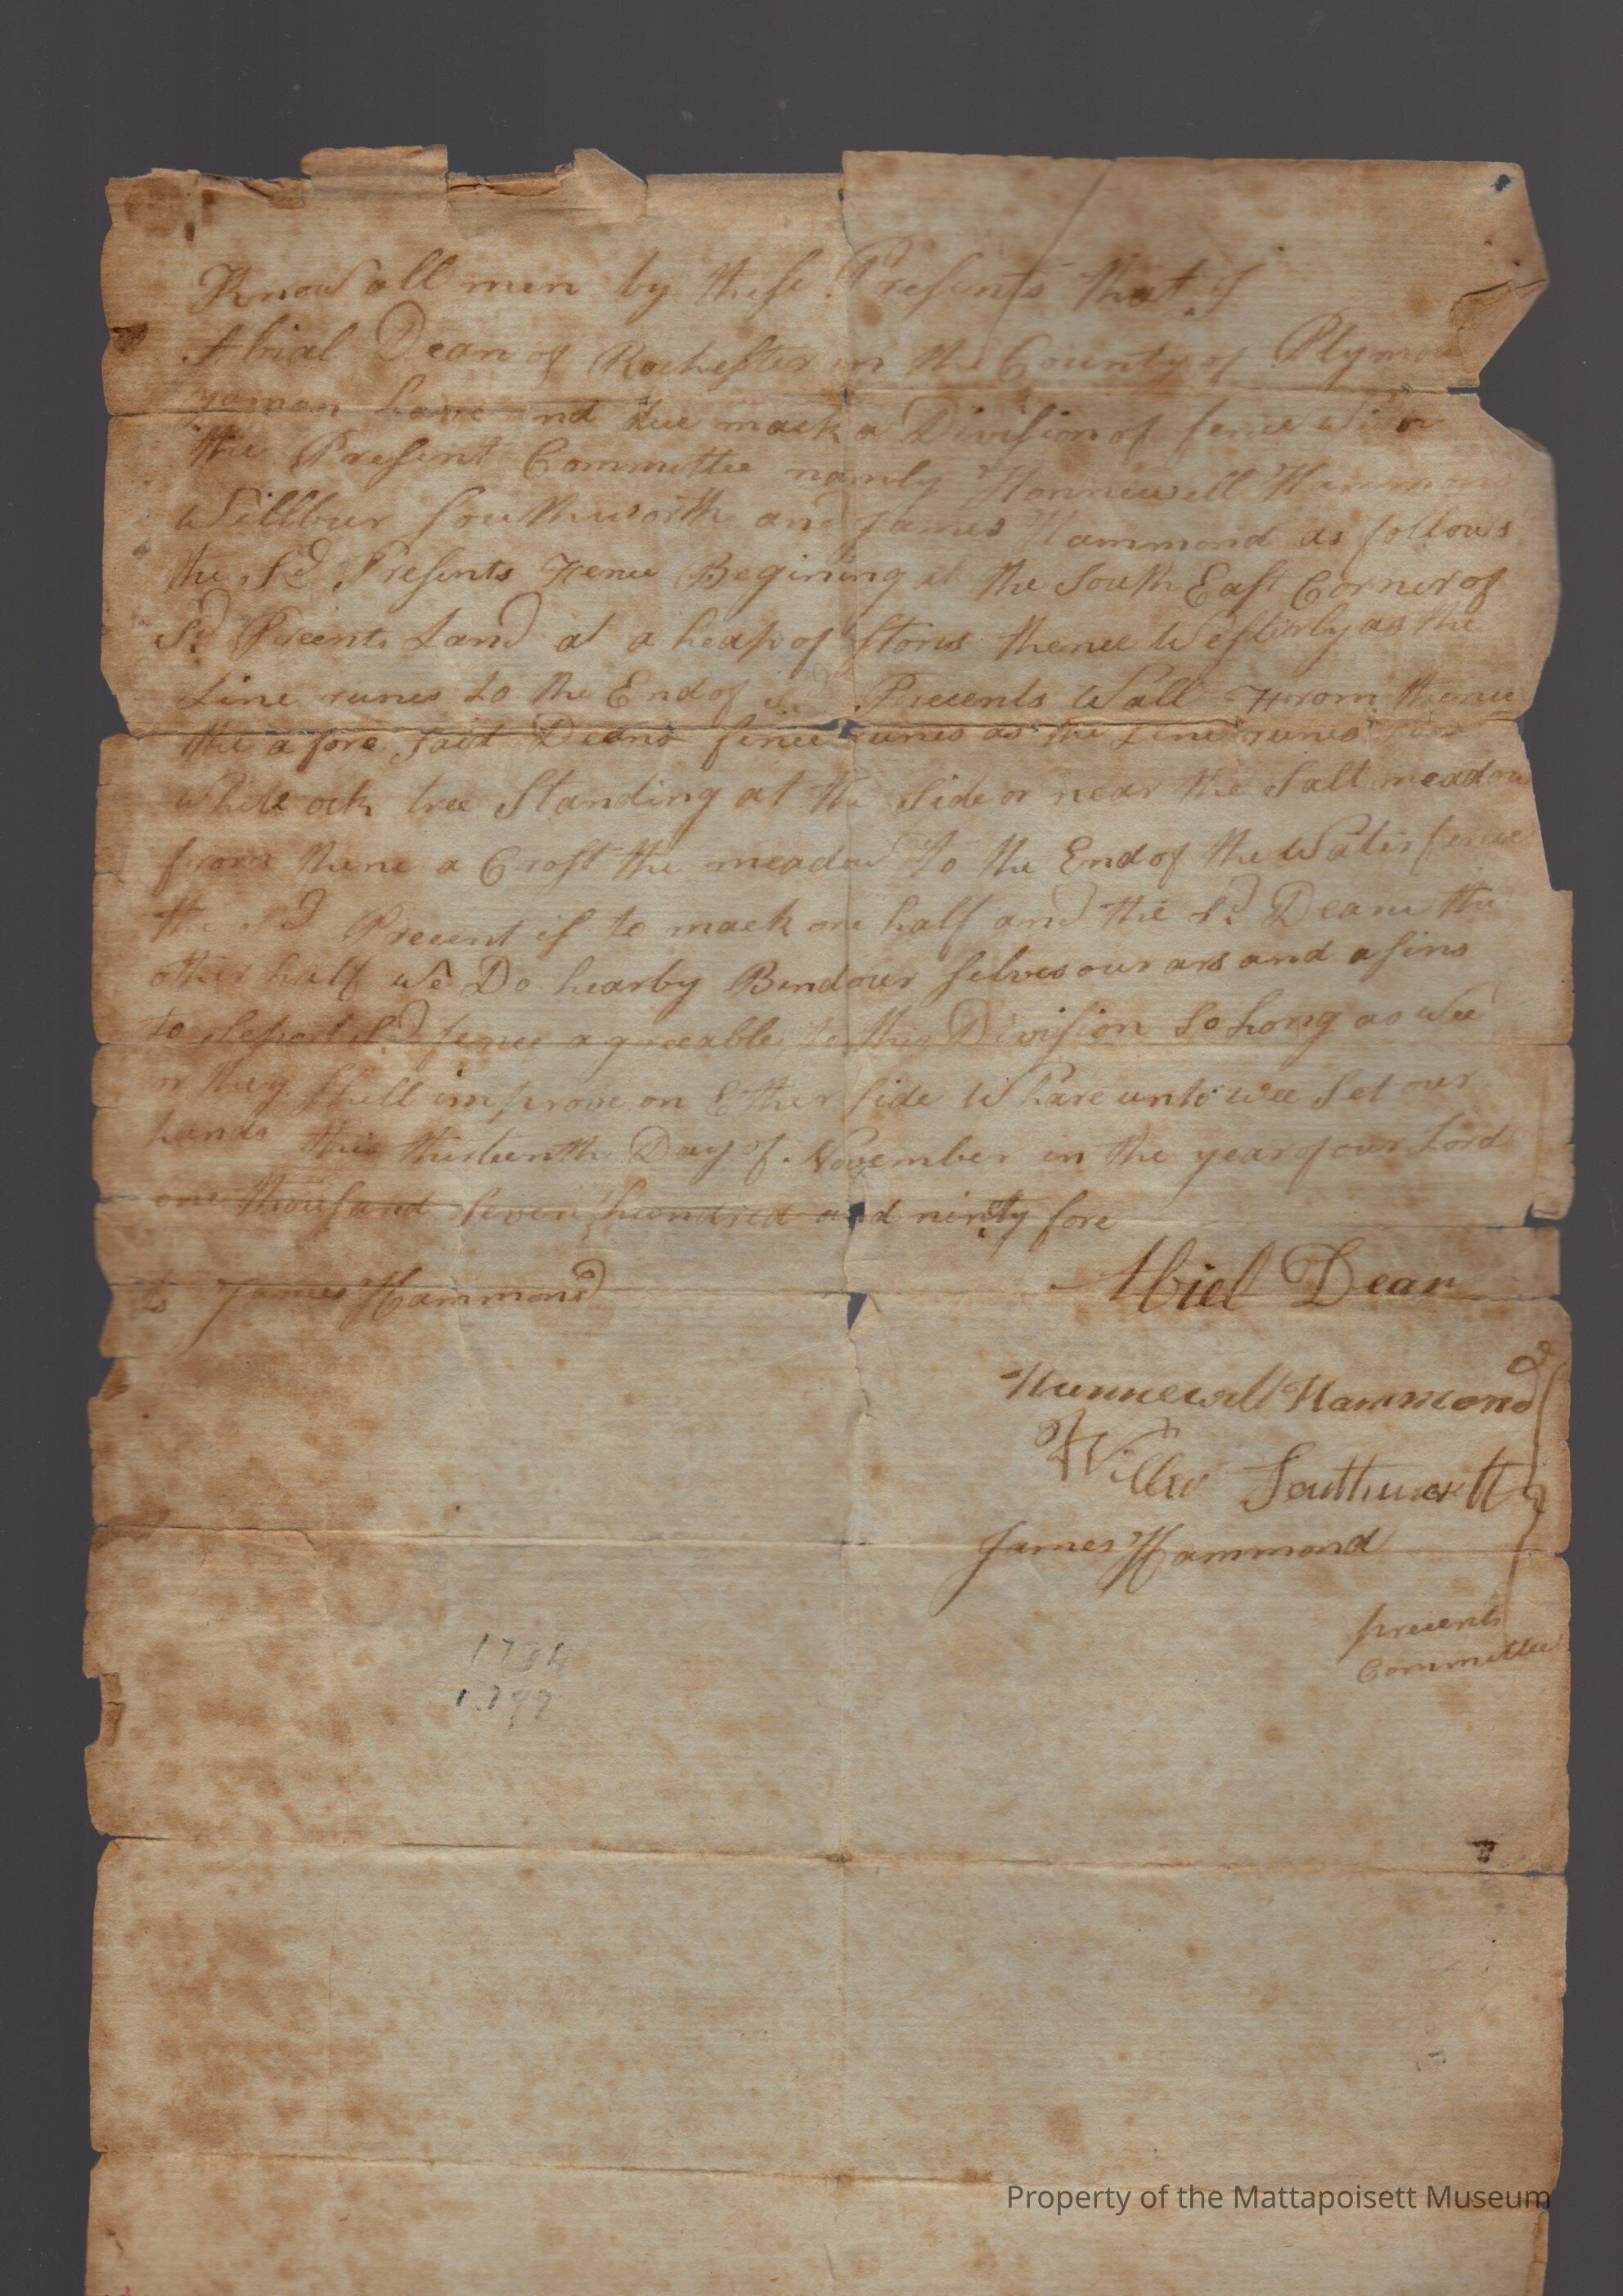 Know all men by these Presents that I
Abial Dean of Rochester in the County of Plymou
yaman have and due mack a Division of fence with
the Present Committee namly Honnewell Hammon
Willbur Southworth and James Hammond as follows
the Sd Presents Fence Begining at the South East Corner of
Sd Precents Land at a heap of Stons thence Westerly as the
Line runes to the End of Sd Precents Wall From thence
the a fore said Deans fence runes as the Line runes
white ock tree Standing at the Side or near the Salt meadow
from thence a Crost the meadow to the End of the Water fence
the Sd Precent is to mack one half and the Sd Deane the
other half we Do hearby Bind our selves our ars and asins
to Seport Sd fence agreeable to this Division So Long as Wee
or they Shall improve on Ether side Whare unto wee Set our
hands this thirteenth Day of November in the year of our Lord
one thousand seven hundred and ninty fore
James Hammond
Abiel Dean
Hunnewell Hammond
Willbr Southworth
James Hammond
precents
Committee
1797
Property of the Mattapoisett Museum